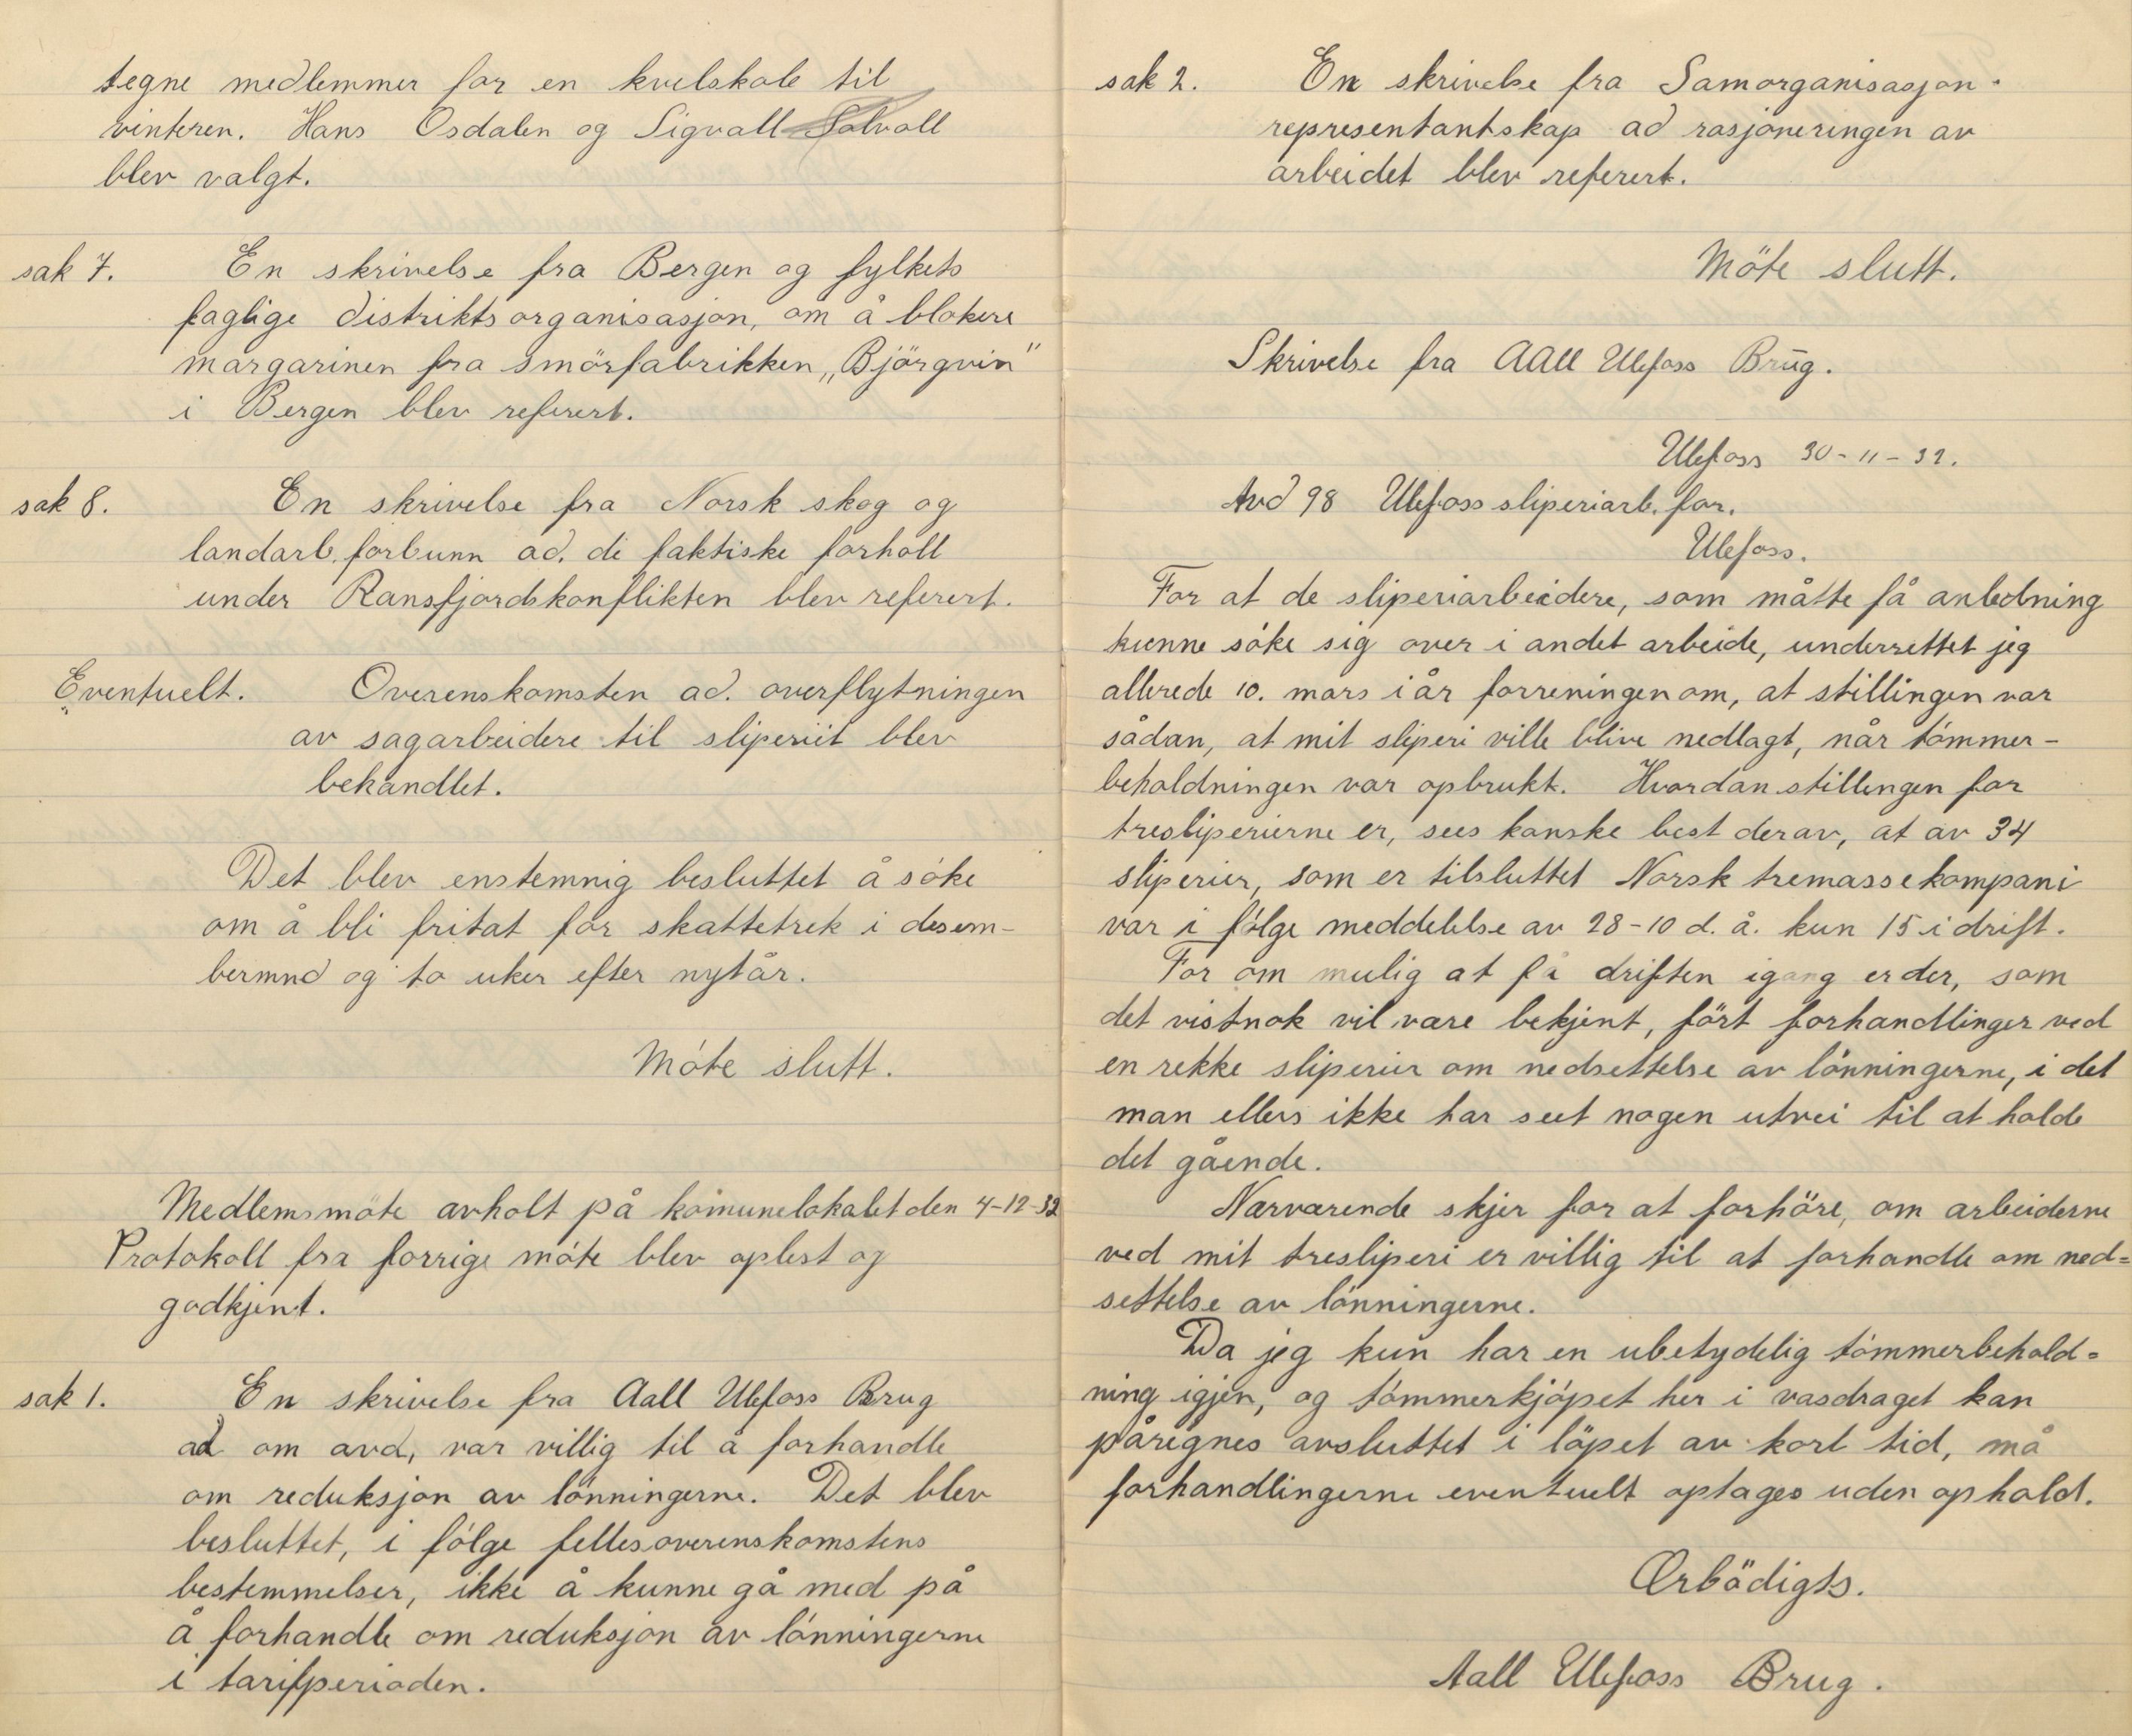 tegne medlemmer for en kvelskole til
vinteren. Hans Osdalen og Sigvall Solvoll
blev valgt.
sak 7. En skrivelse fra Bergen og fylkets
faglige distriktsorganisasjon, om å blokere
margarinen fra smörfabrikken „Björgvin"
i Bergen blev referert.
sak 8. En skrivelse fra Norsk skog og
landarb. forbunn ad. di faktiske forholl
under Ransfjordskonflikten blev referert.
Eventuelt. Overenskomsten ad. overflytningen
av sagarbeidere til sliperiet blev
bekandlet.
Det blev enstemnig besluttet å söke
om å bli fritat for skattetrek i desem-
bermnd og to uker efter nytår.
Möte slutt.
Medlemsmöte avholt på komunelokalet den 4-12-32
Protokoll fra forrige möte blev oplest og
godkjent.
sak 1. En skrivelse fra Aall Ulefoss Brug
ad om avd, var villig til å forhandle
om reduksjon av lönningerne. Det blev
besluttet, i fölge fellesoverenskomstens
bestemmelser, ikke å kunne gå med på
å forhandle om reduksjon av lönningerne
i tarifperioden.
sak 2. En skrivelse fra Samorganisasjon-
representantskap ad rasjoneringen av
arbeidet blev referert.
Möte slutt.
Skrivelse fra AAll Ulefoss Brug.
Ulefoss 30-11-32.
Avd 98 Ulefoss sliperiarb. for.
Ulefoss.
For at de sliperiarbeidere, som måtte få anledning
kunne söke sig over i andet arbeide, underrettet jeg
allerede 10. mars i år forreningen om, at stillingen var
sådan, at mit sliperi ville blive nedlagt, når tömmer-
beholdningen var opbrukt. Hvordan stillingen for
tresliperierne er, sees kanske best derav, at av 34
sliperier, som er tilsluttet Norsk tremassekompani
var i fölge meddelelse av 28-10 d. å. kun 15 i drift.
For om mulig at få driften igang er der, som
det vistnok vil være bekjent, fört forhandlinger ved
en rekke sliperier om nedsettelse av lönningerne, i det
man ellers ikke har seet nogen utvei til at holde
det gående.
Nærværende skjer for at forhöre, om arbeiderne
ved mit tresliperi er villig til at forhandle om ned=
settelse av lönningerne.
Da jeg kun har en ubetydelig tömmerbehold=
ning igjen, og tömmerkjöpet her i vasdraget kan
påregnes avsluttet i löpet av kort tid, må
forhandlingerne eventuelt optages uden ophold.
Ærbödigts.
Aall Ulefoss Brug.